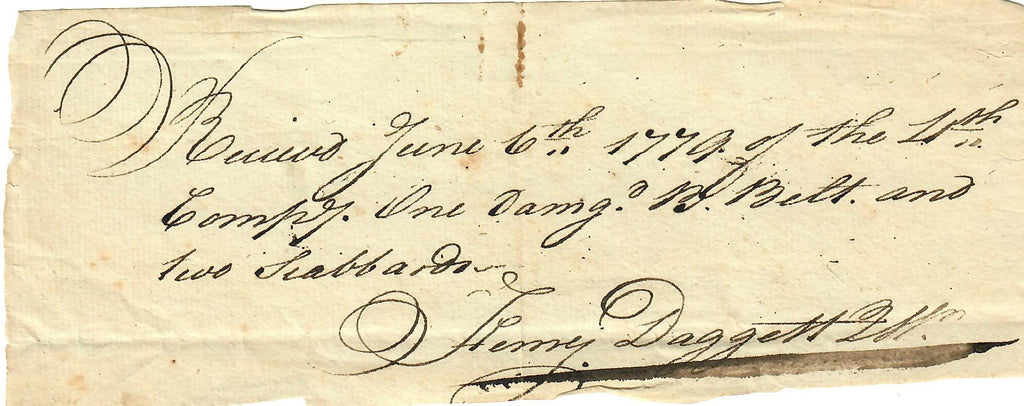 Received June 6th 1779, of the 4th
Compy. One Damgd. By. Belt. and
two Scabbards
Henry Daggett